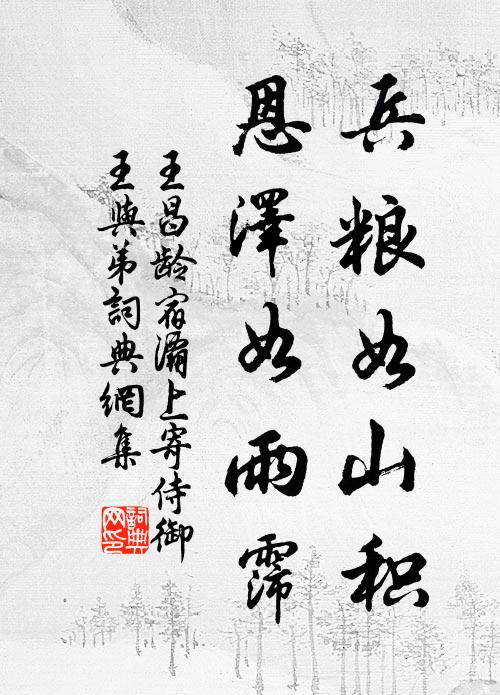 兵粮如山积
恩澤如雨霈
王昌龄宿灞上寄侍御
王與弟詞典網集
詞典网印